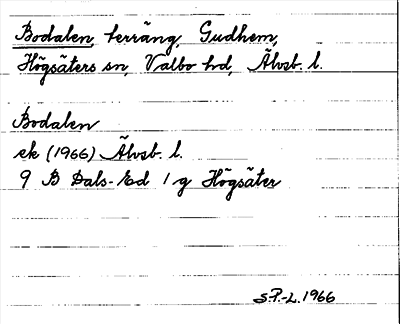 Bodalen, terräng, Gudhem,
Högsäters sn, Valbo hd, Älvsb. l.
Bodalen
ek (1966) Älvsb. l.
9 B Dals-Ed 1 g Högsäter
S.P.-L. 1966